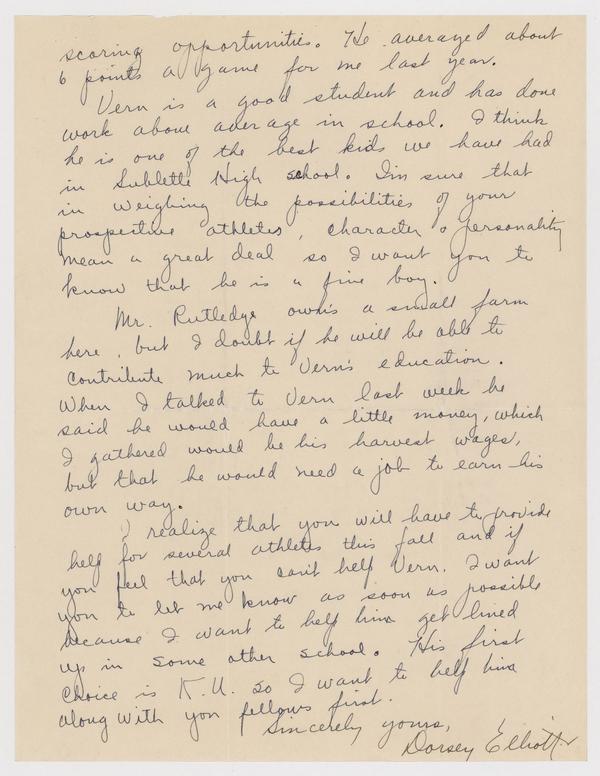 scoring opportunities. He averaged about
6 points a game for me last year.
Vern is a good student and has done
work above average in school. I think
he is one of the best kids we have had
in Sublette High school. I'm sure that
in weighing the possibilities of your
prospective athletes, character & personality
mean a great deal so I want you to
know that he is a fine boy.
Mr. Rutledge owns a small farm
here, but I doubt if he will be able to
contribute much to Vern's education.
When I talked to Vern last week he
said he would have a little money, which
I gathered would be his harvest wages,
but that he would need a job to earn his
own way.
I realize that you will have to provide
help for several athletes this fall and if
you feel that you can't help Vern. I want
you to let me know as soon as possible
because I want to help him get lined
up in some other school. His first
choice is K.U. so I want to help him
along with you fellows first.
Sincerely yours,
Dorsey Elliott